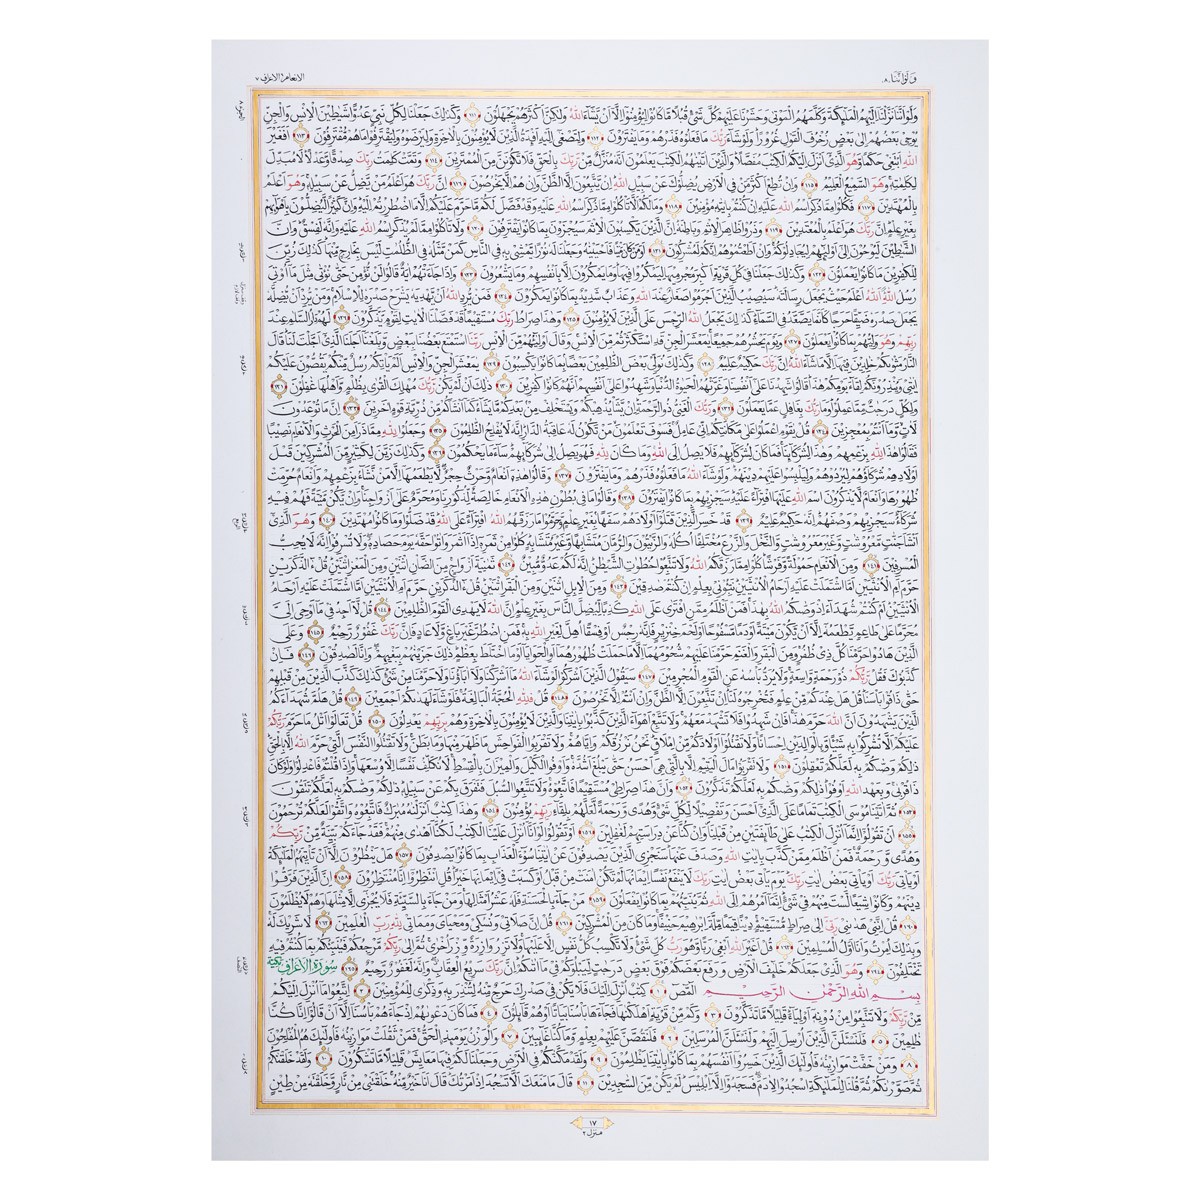 ولو اننا ٨
الانعام ٦ الاعراف ٧
ولو اننا نزلنا اليهم الملئكة وكلمهم الموتى وحشرنا عليهم كل شىء قبلا ما كانوا ليؤمنوا الا ان يشاء الله ولكن اكثرهم يجهلون ١١١ وكذلك جعلنا لكل نبى عدوا شيطين الانس والجن
يوحى بعضهم الى بعض زخرف القول غرورا ولو شاء ربك ما فعلوه فذرهم وما يفترون ١١٢ ولتصغى اليه افدة الذين لا يؤمنون بالاخرة وليرضوه وليقترفوا ما هم مقترفون ١١٣ افغير
الله ابتغى حكما وهو الذى انزل اليكم الكتب مفصلا والذين اتينهم الكتب يعلمون انه منزل من ربك بالحق فلا تكونن من الممترين ١١٤ وتمت كلمت ربك صدقا وعدلا لا مبدل
لكلمته وهو السميع العليم ١١٥ وان تطع اكثر من فى الارض يضلوك عن سبيل الله ان يتبعون الا الظن وان هم الا يخرصون ١١٦ ان ربك هو اعلم من يضل عن سبيله وهو اعلم
بالمهتدين ١١٧ فكلوا مما ذكر اسم الله عليه ان كنتم بايته مؤمنين ١١٨ وما لكم الا تاكلوا مما ذكر اسم الله عليه وقد فصل لكم ما حرم عليكم الا ما اضطررتم اليه وان كثيرا ليضلون باهوائهم
بغير علم ان ربك هو اعلم بالمعتدين ١١٩ وذروا ظاهر الاثم وباطنه ان الذين يكسبون الاثم سيجزون بما كانوا يقترفون ١٢٠ ولا تاكلوا مما لم يذكر اسم الله عليه وانه لفسق وان
الشيطين ليوحون الى اوليئهم ليجادلوكم وان اطعتموهم انكم لمشركون ١٢١ اومن كان ميتا فاحيينه وجعلنا له نورا يمشى به فى الناس كمن مثله فى الظلمت ليس بخارج منها كذلك زين
للكفرين ما كانوا يعملون ١٢٢ وكذلك جعلنا فى كل قرية اكبر مجرميها ليمكروا فيها وما يمكرون الا بانفسهم وما يشعرون ١٢٣ واذا جاءتهم اية قالوا لن نؤمن حتى نؤتى مثل ما اوتى
رسل الله الله اعلم حيث يجعل رسالته سيصيب الذين اجرموا صغار عند الله وعذاب شديد بما كانوا يمكرون ١٢٤ فمن يرد الله ان يهديه يشرح صدره للاسلام ومن يرد ان يضله
يجعل صدره ضيقا حرجا كانما يصعد فى السماء كذلك يجعل الله الرجس على الذين لا يؤمنون ١٢٥ وهذا صراط ربك مستقيما قد فصلنا الايت لقوم يذكرون ١٢٦ لهم دار السلم عند
ربهم وهو وليهم بما كانوا يعملون ١٢٧ ويوم يحشرهم جميعا يمعشر الجن قد استكثرتم من الانس وقال اوليؤهم من الانس ربنا استمتع بعضنا ببعض وبلغنا اجلنا الذى اجلت لنا قال
النار مثوىكم خلدين فيها الا ما شاء الله ان ربك حكيم عليم ١٢٨ وكذلك نولى بعض الظلمين بعضا بما كانوا يكسبون ١٢٩ يمعشر الجن والانس الم ياتكم رسل منكم يقصون عليكم
ايتى وينذرونكم لقاء يومكم هذا قالوا شهدنا على انفسنا وغرتهم الحيوة الدنيا وشهدوا على انفسهم انهم كانوا كفرين ١٣٠ ذلك ان لم يكن ربك مهلك القرى بظلم واهلها غفلون ١٣١
ولكل درجت مما عملوا وما ربك بغافل عما يعملون ١٣٢ وربك الغنى ذو الرحمة ان يشا يذهبكم ويستخلف من بعدكم ما يشاء كما انشاكم من ذرية قوم اخرين ١٣٣ ان ما توعدون
لات وما انتم بمعجزين ١٣٤ قل يقوم اعملوا على مكانتكم انى عامل فسوف تعلمون من تكون له عاقبة الدار انه لا يفلح الظلمون ١٣٥ وجعلوا لله مما ذرا من الحرث والانعام نصيبا
فقالوا هذا لله بزعمهم وهذا لشركائنا فما كان لشركائهم فلا يصل الى الله وما كان لله فهو يصل الى شركائهم ساء ما يحكمون ١٣٦ وكذلك زين لكثير من المشركين قتل
اولادهم شركاؤهم ليردوهم وليلبسوا عليهم دينهم ولو شاء الله ما فعلوه فذرهم وما يفترون ١٣٧ وقالوا هذه انعام وحرث حجر لا يطعمها الا من نشاء بزعمهم وانعام حرمت
ظهورها وانعام لا يذكرون اسم الله عليها افتراء عليه سيجزيهم بما كانوا يفترون ١٣٨ وقالوا ما فى بطون هذه الانعام خالصة لذكورنا ومحرم على ازواجنا وان يكن ميتة فهم فيه
شركاء سيجزيهم وصفهم انه حكيم عليم ١٣٩ قد خسر الذين قتلوا اولادهم سفها بغير علم وحرموا ما رزقهم الله افتراء على الله قد ضلوا وما كانوا مهتدين ١٤٠ وهو الذى
انشا جنت معروشت وغير معروشت والنخل والزرع مختلفا اكله والزيتون والرمان متشابها وغير متشابه كلوا من ثمره اذا اثمر واتوا حقه يوم حصاده ولا تسرفوا انه لا يحب
المسرفين ١٤١ ومن الانعام حمولة وفرشا كلوا مما رزقكم الله ولا تتبعوا خطوت الشيطن انه لكم عدو مبين ١٤٢ ثمنية ازواج من الضان اثنين ومن المعز اثنين قل ءالذكرين
حرم ام الانثيين اما اشتملت عليه ارحام الانثيين نبؤنى بعلم ان كنتم صدقين ١٤٣ ومن الابل اثنين ومن البقر اثنين قل ءالذكرين حرم ام الانثيين اما اشتملت عليه ارحام
الانثيين ام كنتم شهداء اذ وصىكم الله بهذا فمن اظلم ممن افترى على الله كذبا ليضل الناس بغير علم ان الله لا يهدى القوم الظلمين ١٤٤ قل لا اجد فى ما اوحى الى
محرما على طاعم يطعمه الا ان يكون ميتة او دما مسفوحا او لحم خنزير فانه رجس او فسقا اهل لغير الله به فمن اضطر غير باغ ولا عاد فان ربك غفور رحيم ١٤٥ وعلى
الذين هادوا حرمنا كل ذى ظفر ومن البقر والغنم حرمنا عليهم شحومهما الا ما حملت ظهورهما او الحوايا او ما اختلط بعظم ذلك جزينهم ببغيهم وانا لصدقون ١٤٦ فان
كذبوك فقل ربكم ذو رحمة واسعة ولا يرد باسه عن القوم المجرمين ١٤٧ سيقول الذين اشركوا لو شاء الله ما اشركنا ولا اباؤنا ولا حرمنا من شىء كذلك كذب الذين من قبلهم
حتى ذاقوا باسنا قل هل عندكم من علم فتخرجوه لنا ان تتبعون الا الظن وان انتم الا تخرصون ١٤٨ قل فلله الحجة البالغة فلو شاء لهدىكم اجمعين ١٤٩ قل هلم شهداءكم
الذين يشهدون ان الله حرم هذا فان شهدوا فلا تشهد معهم ولا تتبع اهواء الذين كذبوا بايتنا والذين لا يؤمنون بالاخرة وهم بربهم يعدلون ١٥٠ قل تعالوا اتل ما حرم ربكم
عليكم الا تشركوا به شيئا وبالوالدين احسانا ولا تقتلوا اولادكم من املاق نحن نرزقكم واياهم ولا تقربوا الفواحش ما ظهر منها وما بطن ولا تقتلوا النفس التى حرم الله الا بالحق
ذلكم وصىكم به لعلكم تعقلون ١٥١ ولا تقربوا مال اليتيم الا بالتى هى احسن حتى يبلغ اشده واوفوا الكيل والميزان بالقسط لا نكلف نفسا الا وسعها واذا قلتم فاعدلوا ولو كان
ذا قربى وبعهد الله اوفوا ذلكم وصىكم به لعلكم تذكرون ١٥٢ وان هذا صراطى مستقيما فاتبعوه ولا تتبعوا السبل فتفرق بكم عن سبيله ذلكم وصىكم به لعلكم تتقون
١٥٣ ثم اتينا موسى الكتب تماما على الذى احسن وتفصيلا لكل شىء وهدى ورحمة لعلهم بلقاء ربهم يؤمنون ١٥٤ وهذا كتب انزلنه مبرك فاتبعوه واتقوا لعلكم ترحمون
١٥٥ ان تقولوا انما انزل الكتب على طائفتين من قبلنا وان كنا عن دراستهم لغفلين ١٥٦ او تقولوا لو انا انزل علينا الكتب لكنا اهدى منهم فقد جاءكم بينة من ربكم
وهدى ورحمة فمن اظلم ممن كذب بايت الله وصدف عنها سنجزى الذين يصدفون عن ايتنا سوء العذاب بما كانوا يصدفون ١٥٧ هل ينظرون الا ان تاتيهم الملئكة
او ياتى ربك او ياتى بعض ايت ربك يوم ياتى بعض ايت ربك لا ينفع نفسا ايمانها لم تكن امنت من قبل او كسبت فى ايمانها خيرا قل انتظروا انا منتظرون ١٥٨ ان الذين فرقوا
دينهم وكانوا شيعا لست منهم فى شىء انما امرهم الى الله ثم ينبئهم بما كانوا يفعلون ١٥٩ من جاء بالحسنة فله عشر امثالها ومن جاء بالسيئة فلا يجزى الا مثلها وهم لا يظلمون
١٦٠ قل اننى هدىنى ربى الى صراط مستقيم دينا قيما ملة ابرهيم حنيفا وما كان من المشركين ١٦١ قل ان صلاتى ونسكى ومحياى ومماتى لله رب العلمين ١٦٢ لا شريك له
وبذلك امرت وانا اول المسلمين ١٦٣ قل اغير الله ابغى ربا وهو رب كل شىء ولا تكسب كل نفس الا عليها ولا تزر وازرة وزر اخرى ثم الى ربكم مرجعكم فينبئكم بما كنتم فيه
تختلفون ١٦٤ وهو الذى جعلكم خلئف الارض ورفع بعضكم فوق بعض درجت ليبلوكم فى ما اتىكم ان ربك سريع العقاب وانه لغفور رحيم ١٦٥ سورة الاعراف مكية
بسم الله الرحمن الرحيم المص ١ كتب انزل اليك فلا يكن فى صدرك حرج منه لتنذر به وذكرى للمؤمنين ٢ اتبعوا ما انزل اليكم
من ربكم ولا تتبعوا من دونه اولياء قليلا ما تذكرون ٣ وكم من قرية اهلكنها فجاءها باسنا بياتا او هم قائلون ٤ فما كان دعوىهم اذ جاءهم باسنا الا ان قالوا انا كنا
ظلمين ٥ فلنسئلن الذين ارسل اليهم ولنسئلن المرسلين ٦ فلنقصن عليهم بعلم وما كنا غائبين ٧ والوزن يومئذ الحق فمن ثقلت موازينه فاولئك هم المفلحون
٨ ومن خفت موازينه فاولئك الذين خسروا انفسهم بما كانوا بايتنا يظلمون ٩ ولقد مكنكم فى الارض وجعلنا لكم فيها معايش قليلا ما تشكرون ١٠ ولقد خلقنكم
ثم صورنكم ثم قلنا للملئكة اسجدوا لادم فسجدوا الا ابليس لم يكن من السجدين ١١ قال ما منعك الا تسجد اذ امرتك قال انا خير منه خلقتنى من نار وخلقته من طين
١٧
منزل ٢